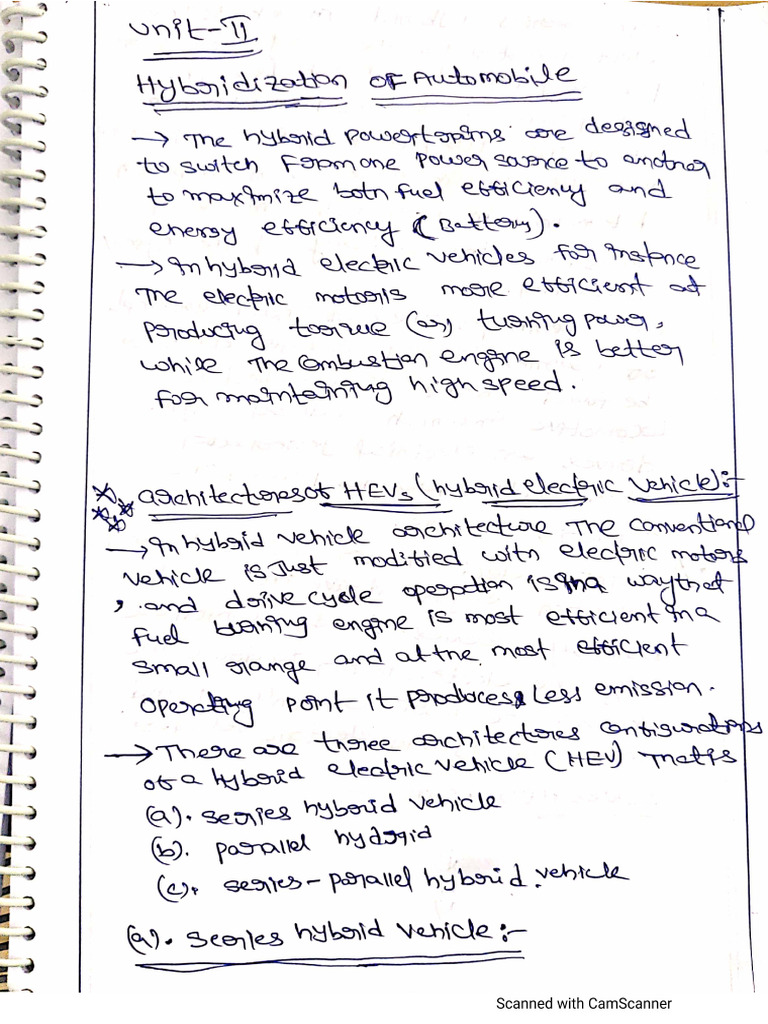 Unit-II
Hybridization of Automobile
→ The hybrid powertrains are designed
to switch form one power source to another
to maximize both fuel efficiency and
energy efficiency (Battery).
→ In hybrid electric vehicles for instance
The electric motor is more efficient at
producing torque (or) turning power,
while The combustion engine is better
for maintaining high speed.
architectures of HEVs (hybrid electric vehicle):-
→ In hybrid vehicle architecture The conventional
vehicle is Just modified with electric motors
, and drive cycle operation is in a way that
fuel burning engine is most efficient in a
small range and at the most efficient
operating point it produces Less emission.
→ There are three architectures configurations
of a hybrid electric vehicle (HEV) That is
(a). series hybrid vehicle
(b). parallel hydrid
(c). series-parallel hybrid vehicle
(a). series hybrid vehicle:-
Scanned with CamScanner